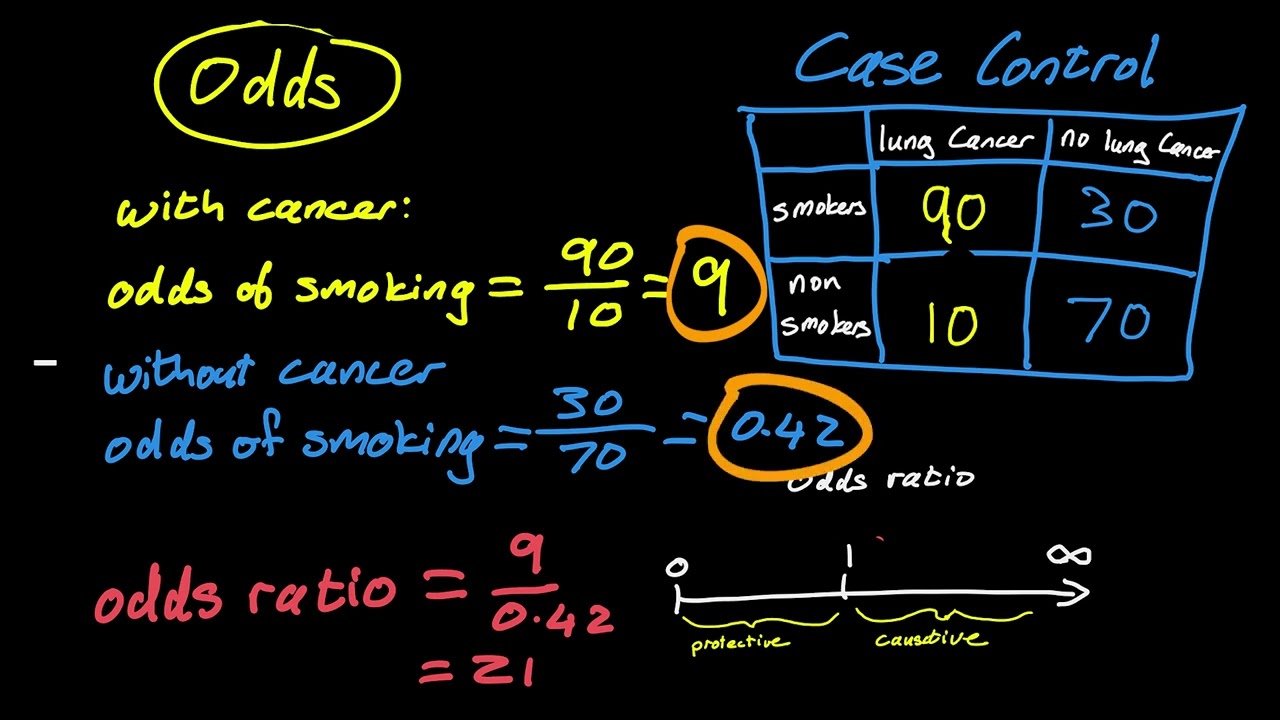 Odds
Case Control
lung Cancer no lung Cancer
smokers 90 30
non
smokers 10 70
with cancer:
odds of smoking = 90/10 = 9
without cancer
odds of smoking = 30/70 = 0.42
odds ratio = 9/0.42
= 21
odds ratio
0 1 ∞
protective causative